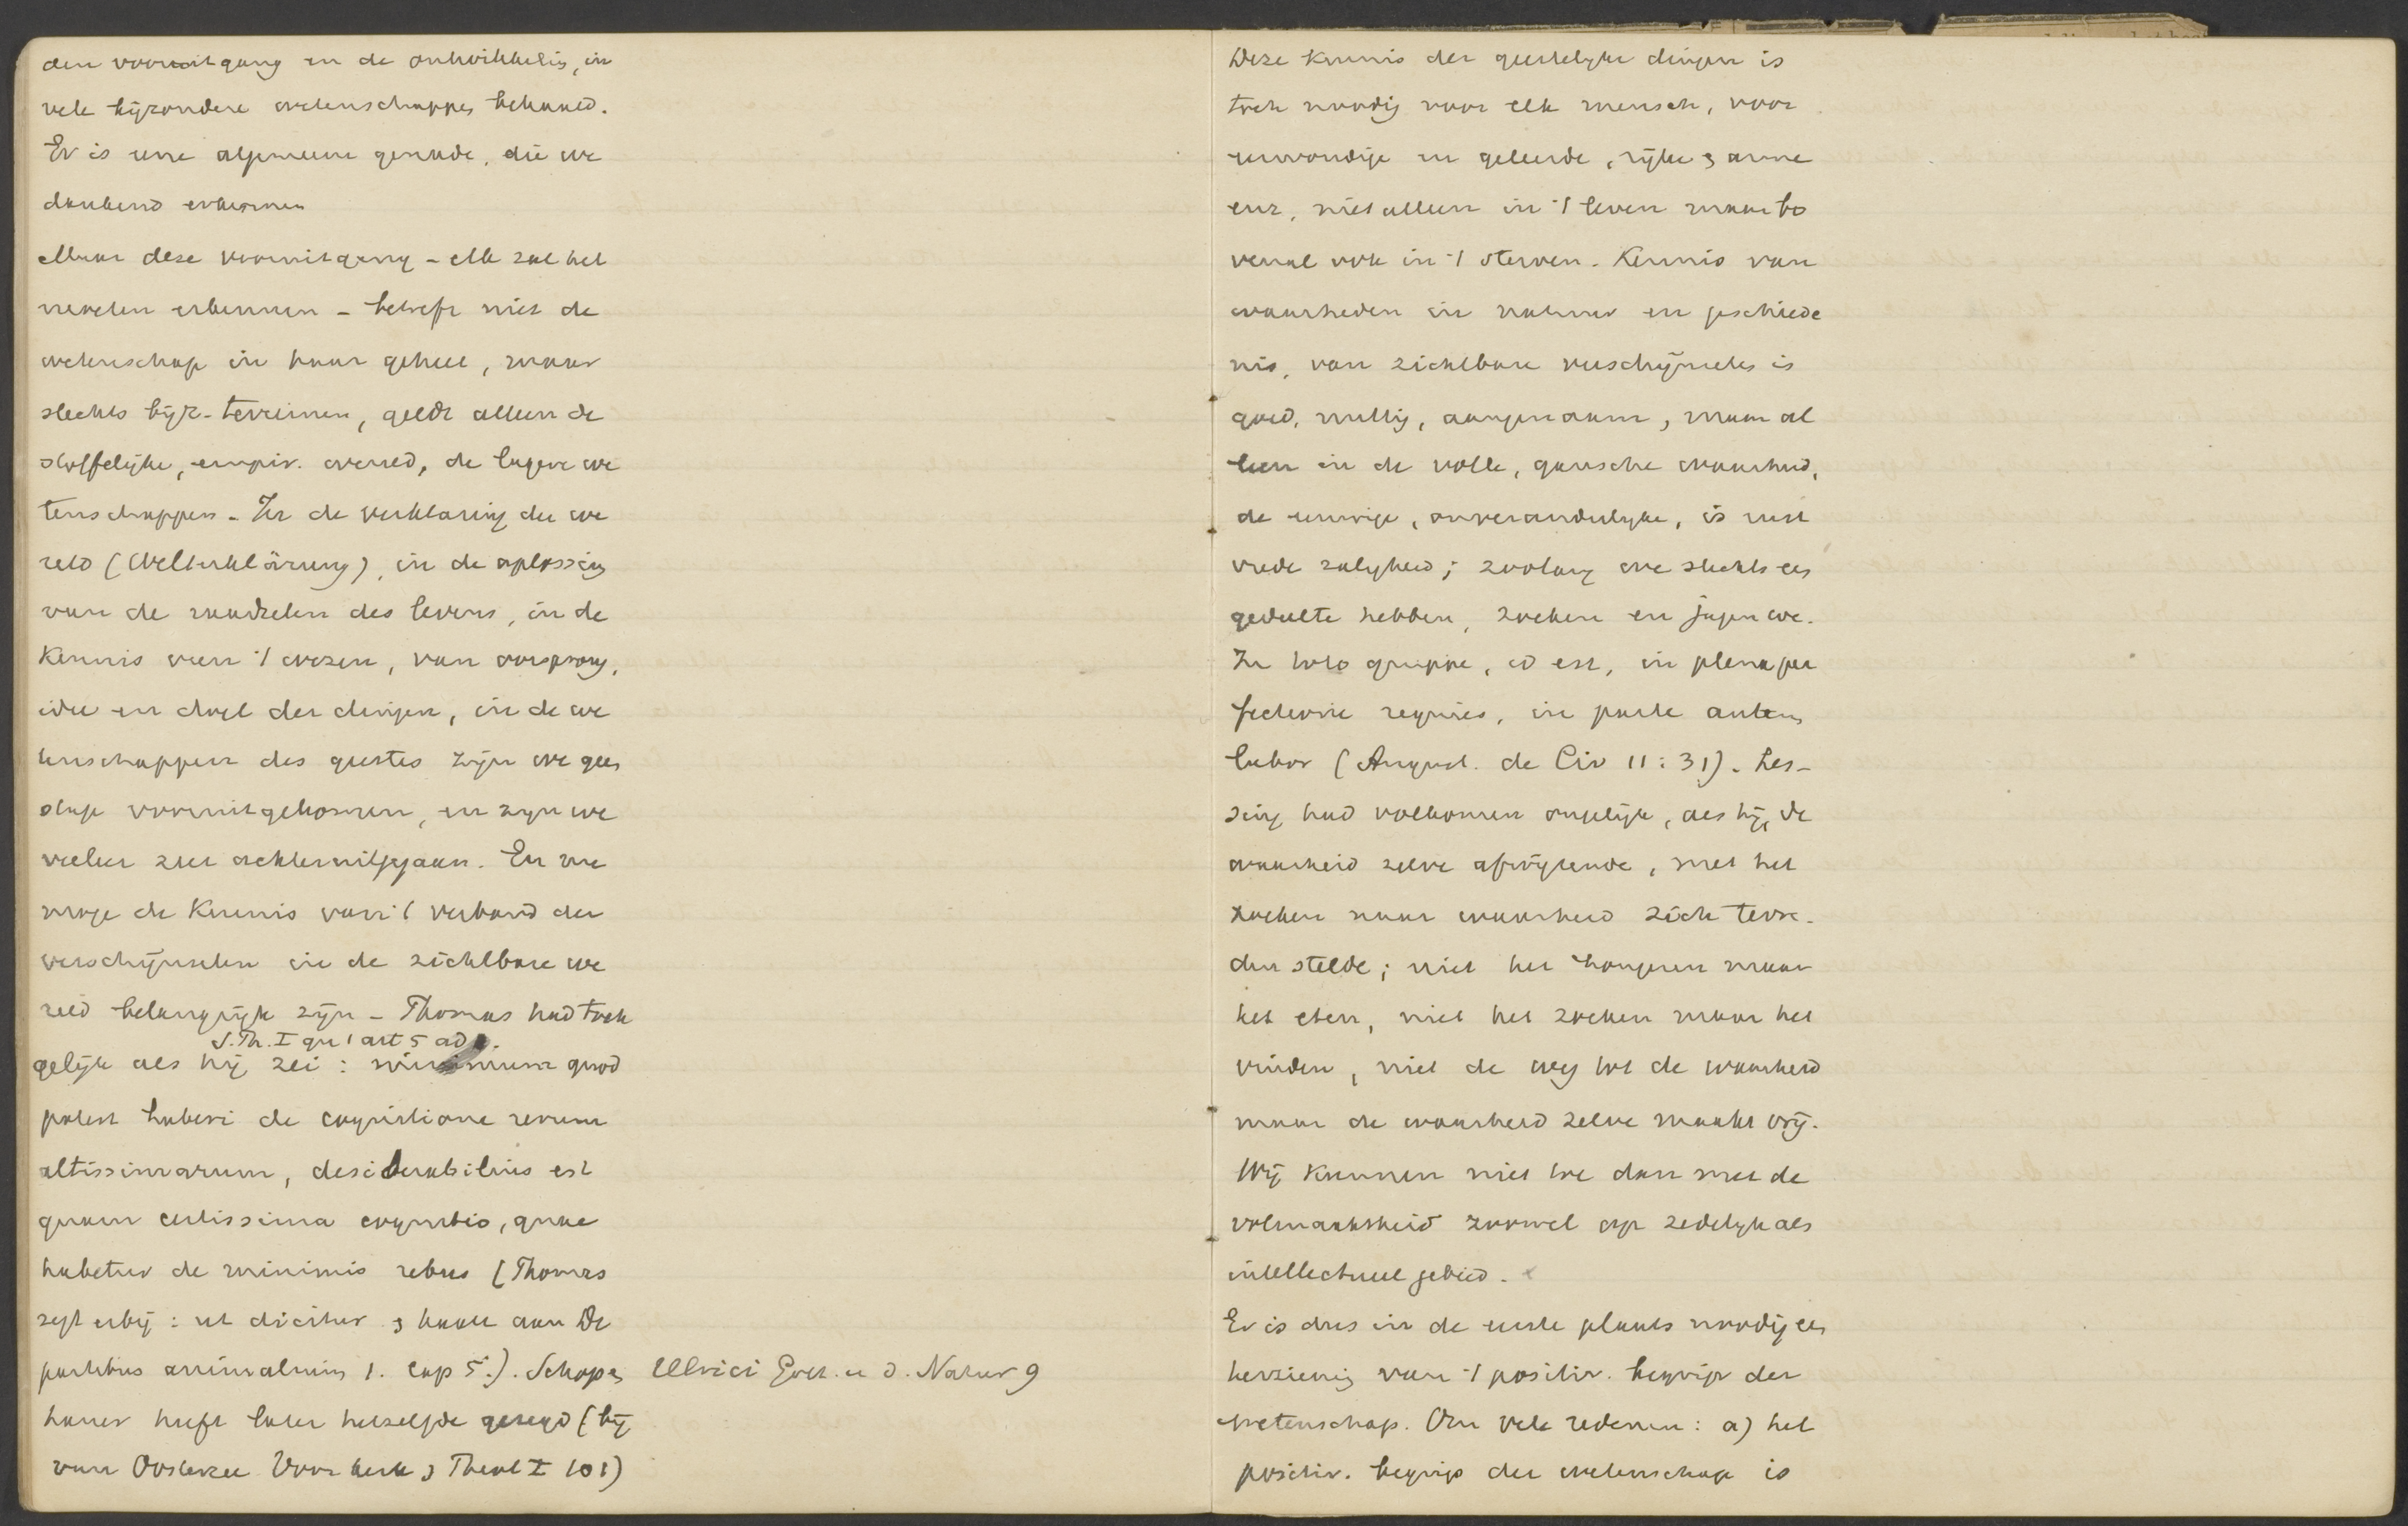 den vooruitgang en de ontwikkelig, in
vele bijzondere wetenschappen behaald.
Er is eene algemeene genade, die we
dankend erkennen
Maar deze vooruitgang – elk zal het
moeten erkennen – betreft niet de
wetenschap in haar geheel, maar
slechts bijz. terreinen, geldt alleen de
stoffelijke, empir. wereld, de lagere we
tenschappen. In de verklaring der we
reld (Welterklärung), in de oplossing
van de raadselen des levens, in de
Kennis van 't wezen, van oorsprong,
idee en doel der dingen, in de we
tenschappen des geestes zijn we geen
stap vooruitgekomen, en zijn we
veeleer zeer achteruitgegaan. En we
moge de Kennis van 't verband der
verschijnselen in de zichtbare we
reld belangrijk zijn – Thomas had toch
S. Th. I qu 1 art 5 ad 1.
gelijk als hij zei: minimum quod
potest haberi de cognitione rerum
altissimarum, desiderabilius est
quam certissima cognitio, quae
habetur de minimis rebus (Thomas
zegt erbij: ut dicitur & haalt aan De
partibus animalium 1. cap 5.). Schopen
Ulrici Gott. u d. Natur 9
hauer heeft later hetzelfde gezegd (bij
van Oosterzee Voor kerk & Theol I 101)
Deze Kennis der geestelijke dingen is
toch noodig voor elk mensch, voor
eenvoudige en geleerde, rijke & arme
enz, niet alleen in 't leven maar bo
venal ook in 't sterven. Kennis van
waarheden in natuur en geschiede
nis, van zichtbare verschijnselen is
goed, nuttig, aangenaam, maar al
leen in de volle, gansche waarheid,
de eeuwige, onveranderlijke, is rust
vrede zaligheid; zoolang we slechts een
gedeelte hebben, zoeken en jagen we.
In toto quippe, id est, in plena per
fectione requies, in parte autem
labor (August. de Civ 11:31). Les-
sing had volkomen ongelijk, als hij, de
waarheid zelve afwijzende, met het
zoeken naar waarheid zich tevre-
den stelde; niet het hongeren maar
het eten, niet het zoeken maar het
vinden, niet de weg tot de waarheid
maar de waarheid zelve maakt vrij.
Wij kunnen niet toe dan met de
volmaaktheid zoowel op zedelijk als
intellectueel gebied.
Er is dus in de eerste plaats noodig een
herziening van 't positiv. begrip der
wetenschap. Om vele redenen: a) het
positiv. begrip der wetenschap is